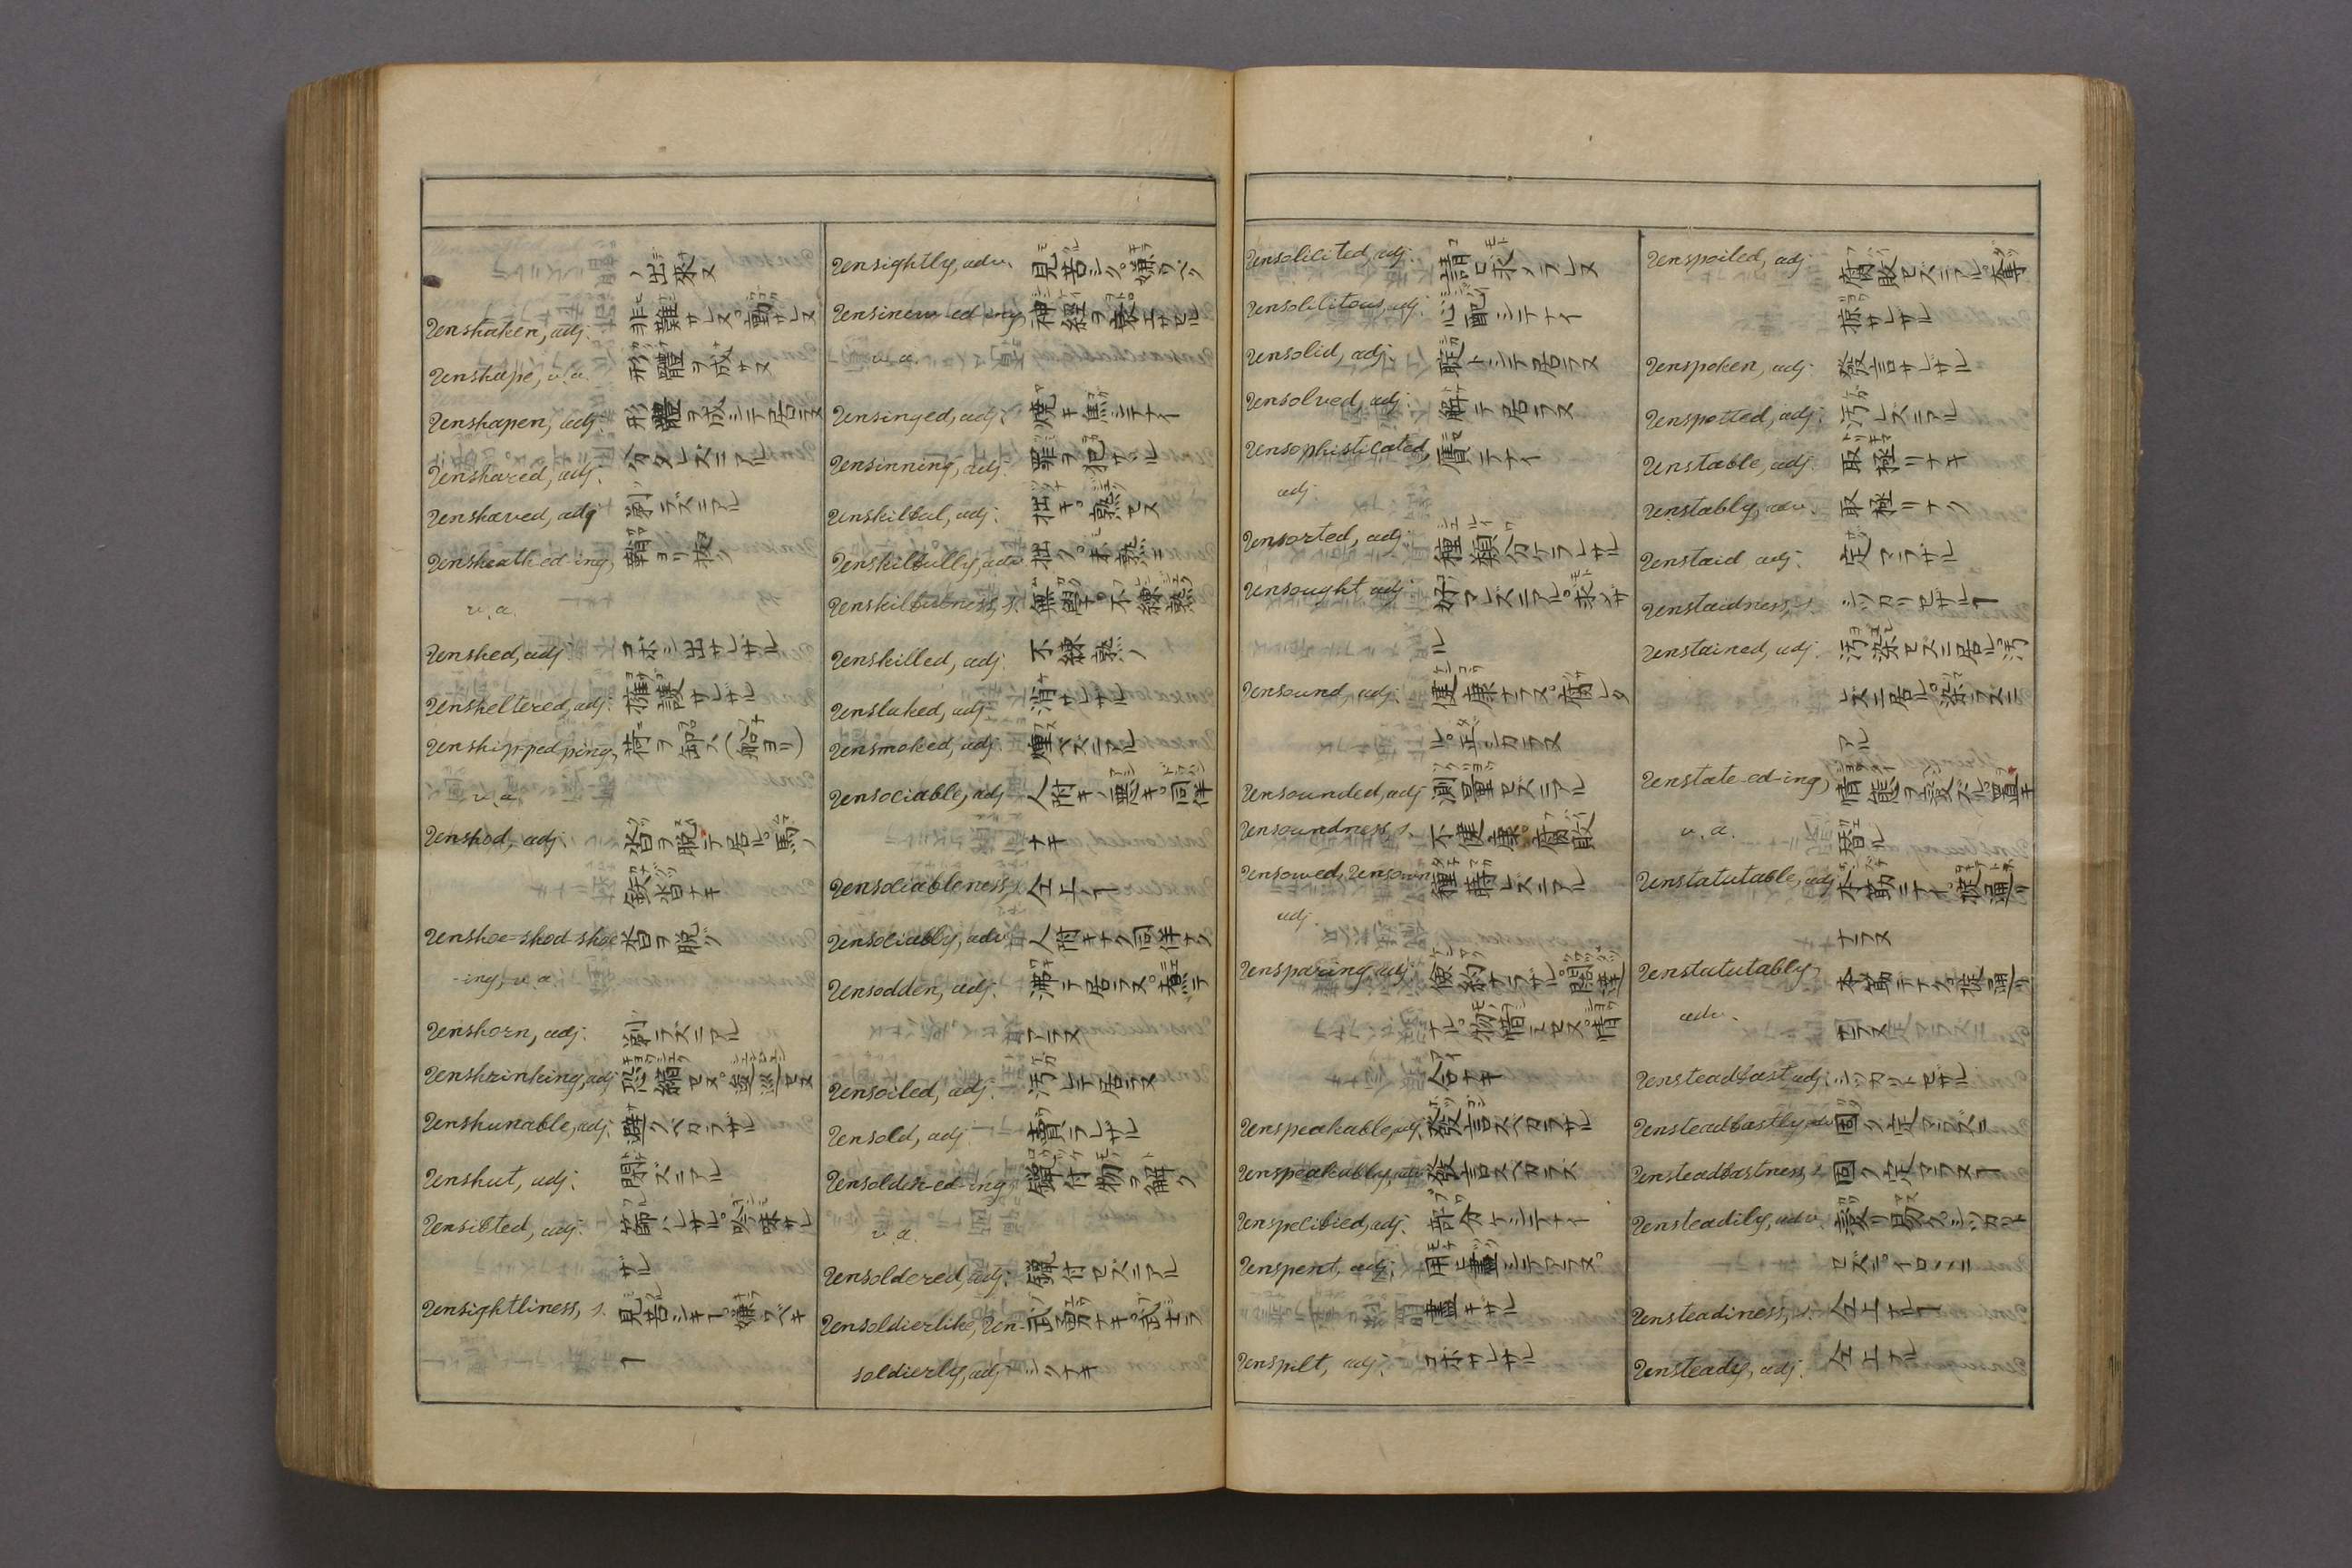 ノ出来ヌ
Unshaken, adj. 非難サレヌ。動サレヌ
Unshape, v. a. 形體ヲ成サヌ
Unshapen, adj. 形體ヲ成シテ居ラヌ
Unshared, adj. 分タレズニアル
Unshaved, adj 剃ラズニアル
Unsheath-ed-ing, 鞘ヨリ抜ク
v. a.
Unshed, adj. コボシ出サレザル
Unsheltered, adj. 擁護サレザル
Unship-ped-ping, 荷ヲ卸ス(舩ヨリ)
v. a.
Unshod, adj. 沓ヲ脱テ居ル。馬ノ
鉄沓ナキ
Unshoe-shod-shoe 沓ヲ脱ク
-ing, v. a.
Unshorn, adj. 剃ラズニアル
Unshrinking, adj 恐縮セヌ。
Unshunable, adj. 避クベカラザル
Unshut, adj. 閉ズニアル
Unsifted, adj. 篩ハレザル。吟味サレ
ザル
Unsightliness, s. 見苦シキ。嫌フベキ
Unsightly, adv. 見苦シク。嫌フベク
Unsinew-ed-ing, 神経ヲ衰エサセル
v. a.
Unsinged, adj. 焼キ焦シテナイ
Unsinning, adj. 罪ヲ犯サヾル
Unskilful, adj. 拙キ。熟セヌ
Unskilfully, adv 拙ク。未熟ニ
Unskilfulness, s. 無學。不練熟
Unskilled, adj. 不練熟ノ
Unslaked, adj. 消サレザル
Unsmoked, adj. 煙ベズニアル
Unsociable, adj 人附キノ悪キ。同伴
ナキ
Unsociableness, s. 仝上ノ
Unsociably, adv 人附キナク同伴ナク
Unsodden, adj. 沸テ居ラヌ。煮テ
アラヌ
Unsoiled, adj. 汚レテ居ラヌ
Unsold, adj. 賣ラレザル
Unsolder-ed-ing, 鑞付物ヲ解ク
v. a.
Unsoldered, adj. 鑞付セズニアル
Unsoldierlike, Un- 武勇ナキ。武士ラ
soldierly, adj シクナキ
Unsolicited, adj. 請ヒ求メラレヌ
Unsolicitous, adj. 心配シテナイ
Unsolid, adj. 聢トシテ居ラヌ
Unsolved, adj. 解テ居ラヌ
Unsophisticated, 贋テナイ
adj.
Unsorted, adj. 種類分ケラレザル
Unsought adj. 好マレズニアル。求メザ
ル
Unsound, adj. 健康ナラヌ。腐レタ
ル。正シカラヌ
Unsounded, adj 測量セズニアル
Unsoundness, s. 不健康。腐敗
Unsowed, Unsown 種蒔レズニアル
adj.
Unsparing, adj. 倹約ナラザル。闊達
ナル。物惜ミセヌ。情
合ナキ
Unspeakable, adj. 發言スベカラザル
Unspeakably, adv 發言スベカラズ
Unspecified, adj. 部分ケシテナイ
Unspent, adj. 用ヒ盡シテアラヌ。
盡キザル
Unspilt, adj. コボサレザル
Unspoiled, adj. 腐敗セズニアル。奪
掠サレザル
Unspoken, adj. 發言サレザル
Unspotted, adj. 汚レズニアル
Unstable, adj. 取極リナキ
Unstably, adv. 取極リナク
Unstaid adj. 定マラザル
Unstaidness, s. シツカリセザルヿ
Unstained, adj. 汚染セズニ居ル。汚
レズニ居ル。染ラズニ
アル
Unstate-ed-ing, 情態ヲ変ズル。置キ
v. a. 替ル
Unstatutable, adj 本筋ニナイ。掟通リ
ナラヌ
Unstatutably, 本筋テナク掟通リ
adv. ナラヌ
Unsteadfast adj. シツカリトセザル
Unsteadfastly, adv 固ク定マラズニ
Unsteadfastness, s 固ク定マラヌヿ
Unsteadily, adv. 変リ易ク。シツカリト
セズニ。イロ〱ニ
Unsteadiness, s. 仝上ナルヿ
Unsteady, adj. 仝上ナル